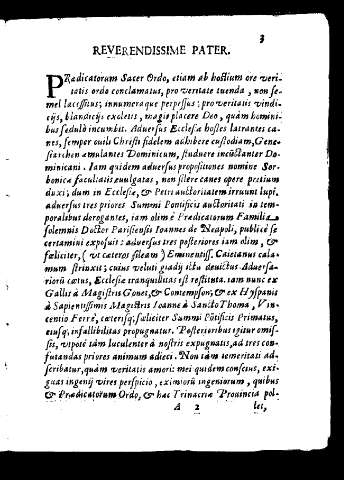 3
REVERENDISSIME PATER.
PRædicatorum Sacer Ordo, etiam ab hostium ore veri-
tatis ordo conclamatus, pro veritate tuenda, non se-
mel lacessitus; innumeraque perpessus; pro veritatis vindi-
cijs, blandicijs excletus, magis placere Deo, quàm homini-
bus sedulò incumbit. Adversus Ecclesiæ hostes latrantes ca-
nes, semper ovili Christi fidelem adhibere custodiam, Gene-
siarchen æmulantes Dominicum, studuere incūctanter Do-
minicani. Iam quidem adversus propositiones nomine Sor-
bonicæ facultatis evulgatas, non silere canes opere pretium
duxi; dum in Ecclesiæ, & Petri auctoritatem irruunt lupi,
adversus tres priores Summi Pontificis auctoritati in tem-
poralibus derogantes, iam olim è Prædicatorum Familia
solemnis Doctor Parisiensis Ioannes de Neapoli, publicè se
certamini exposuit: adversus tres posteriores iam olim, &
fœliciter, (ut cæteros sileam) Eminentiss. Caietanus cala-
mum strinxit; cuius veluti gladij ictu devictus Adversa-
riorū cœtus, Ecclesiæ tranquilitas est restituta. iam nunc ex
Gallis à Magistris Gonet, & Contempson; & ex Hyspanis
à Sapientissimis Magistris Ioanne à Sancto Thoma, Vin-
centio Ferrè, cæterisq; fœliciter Summi Põtificis Primatus,
eiusq; infallibilitas propugnatur. Posterioribus igitur omis-
sis, vipotè tàm luculenter à nostris expugnatis, ad tres con-
futandas priores animum adieci. Non tàm temeritati ad-
scribatur, quàm veritatis amori: mei quidem consetus, exi-
guas ingenij vires perspicio, eximiorū ingeniorum, quibus
& Prædicatorum Ordo, & hæc Trinacriæ Provincia pol-
A 2 let,